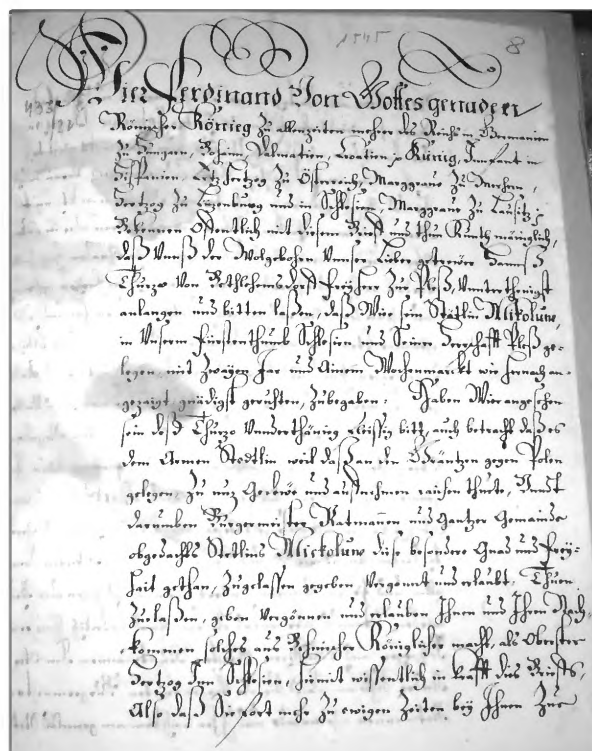 1545 8
Wier Ferdinand Von Gottes genaden
Römischer Könnieg zu allenzeiten mehrer des Reichs in Germanien
zu Hungarn, Behaim, Dalmatien, Croatien, Künig, Innfant in
Hispanien, Ertzhertzog zu Österreich, Marggrave zu Merhern,
Hertzog zu Lützenburg und in Schlesien, Marggrave zu Lausitz,
Bekennen Öffentlich mit diesem Brieff und thun kundt mäniglich,
daß Unnß der Wolgebohen Unnser Lieber getreüer Hannß
Thurzo von Bethlehemsdorff Freyherr zu Pleß, Unnterthenigst
anlangen und bitten laßen, daß Wier sein Statlin Mikolum,
in Unserm Fürstenthumb Schlesien und Seiner Herrschafft Pleß ge-
legen, mit zwayen Jar und Ainem Wochenmarckt wie hernach an-
gezaigt gnädigst geruhten, zubegaben. Haben Wier angesehen
sein deß Thurzo Unnderthänig fleissig bitt, auch betracht daß es
dem Armen Stedtlin weil daß an den Gräntzen gegen Polen
gelegen zu nuz und auffnehmen raichen thuete, Unndt
darumben Burgermeister, Ratmannen und Gantzer Gemainde
obgedachts Statlins Mickolum diese besondere Gnad und Frey-
hait gethan, zugelassen gegeben Vergönnt und erlaubt. Thuen
zuelaßen, geben Vergönnen und erlauben Ihnen und Ihren Nach-
kommen solches aus Behmischer Königlicher macht, als Obrister
Hertzog Inn Schlesien, hiemit wissentlich in krafft dits Brieffs,
Also daß Sie fort mehr zu ewigen Zeiten bey Ihnen Zue